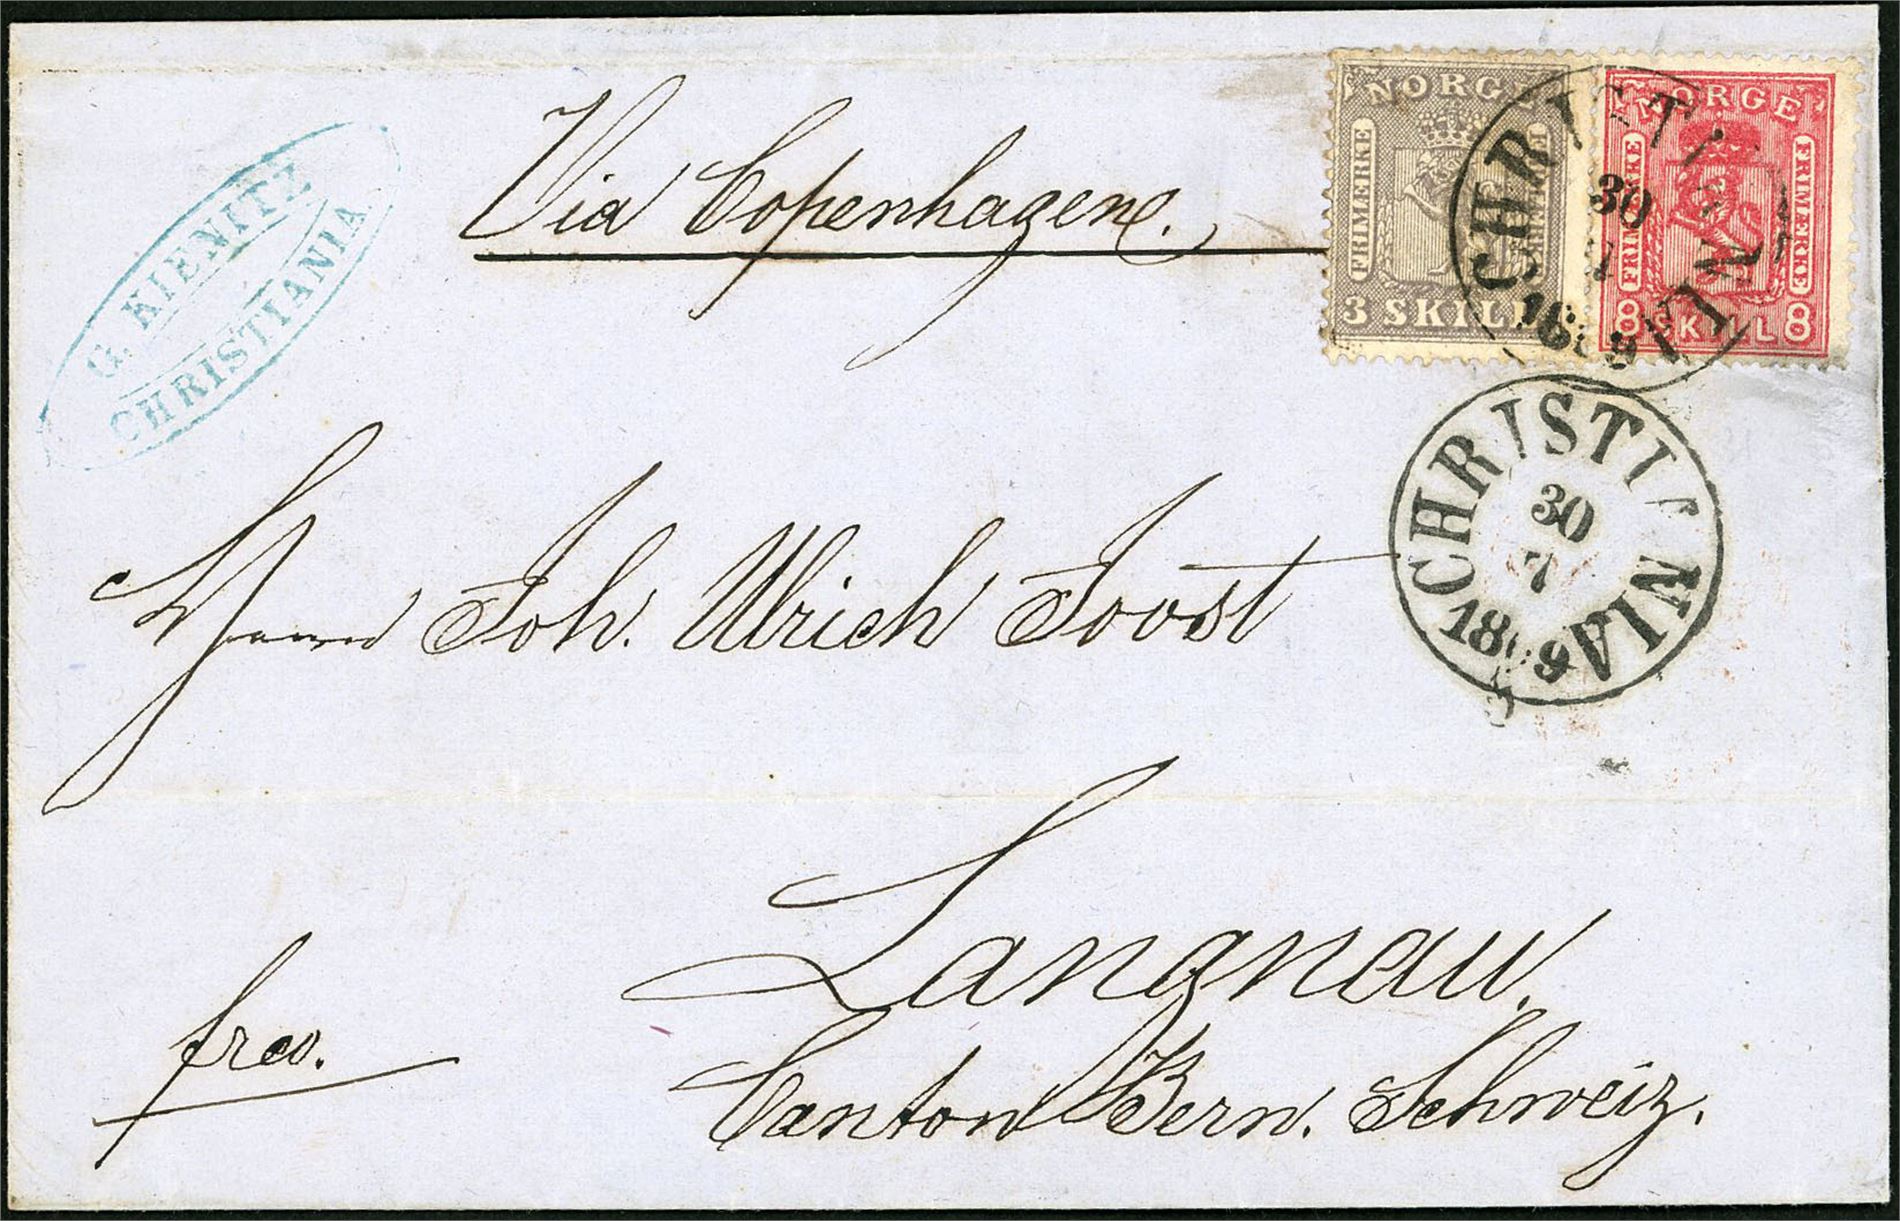 G. KIENITZ
CHRISTIANIA
Via Copenhagen.
NORGE
FRIMÆRKE
FRIMÆRKE
3 SKILL
NORGE
FRIMÆRKE
FRIMÆRKE
8 SKILL 8
CHRISTIANIA
30
7
1869
CHRISTIANIA
30
7
1869
Herrn Joh. Ulrich Joost
Langnau.
frco.
Canton Bern. Schweiz.